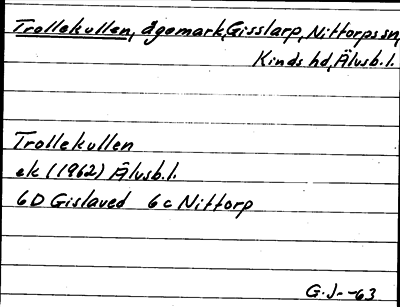 Trollekullen, ägomark, Gisslarp, Nittorps sn,
Kinds hd, Älvsb. l.
Trollekullen
ek (1962) Älvsb. l.
6D Gislaved 6c Nittorp
G. J. -63